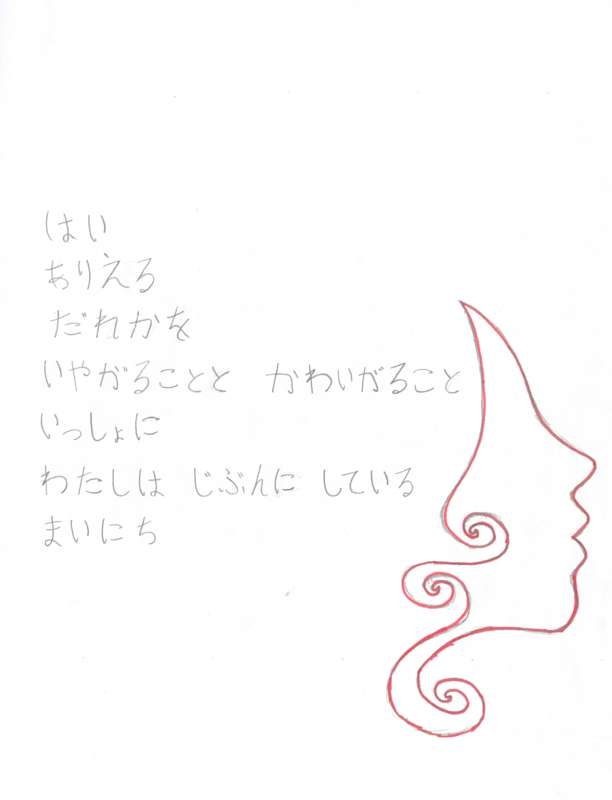 はい
ありえる
だれかを
いやがることと かわいがること
いっしょに
わたしは じぶんに している
まいにち